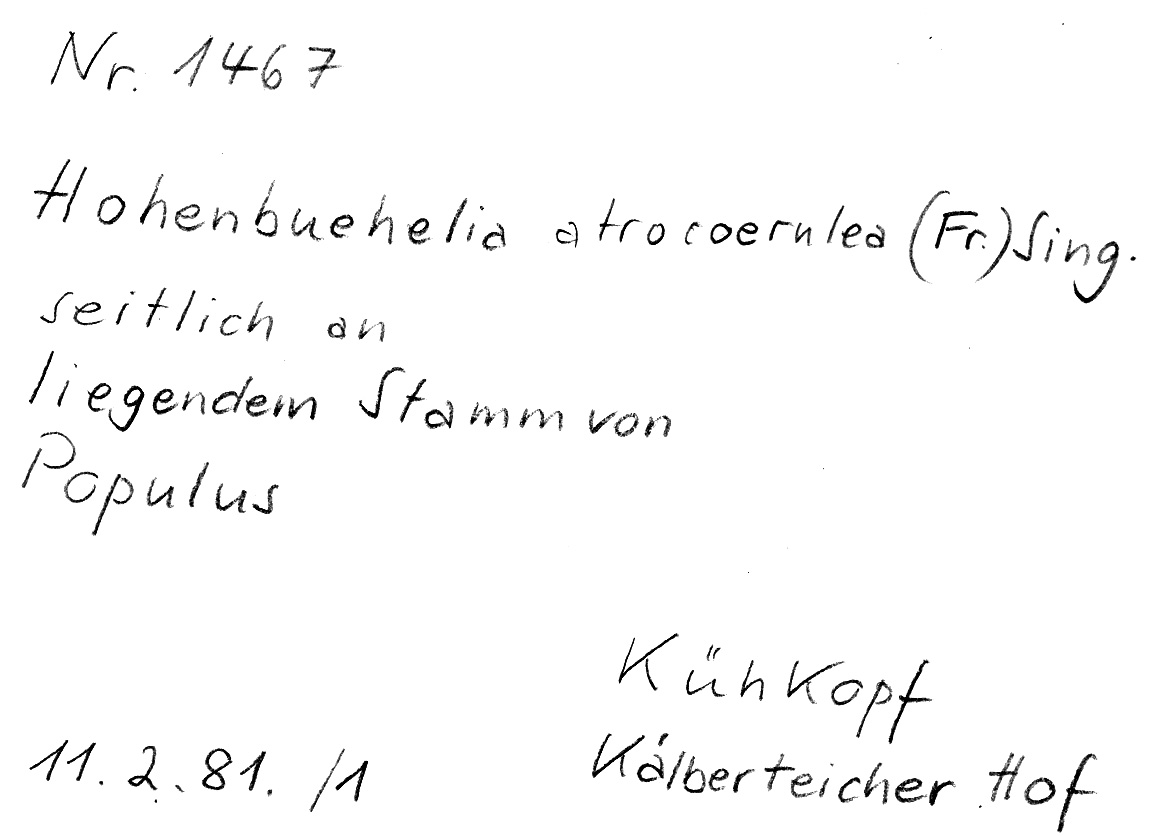 Nr. 1467
Hohenbuehelia atrocoerulea (Fr.) Sing.
seitlich an
liegendem Stamm von
Populus
Kühkopf
11. 2. 81. /1
Kálberteicher Hof